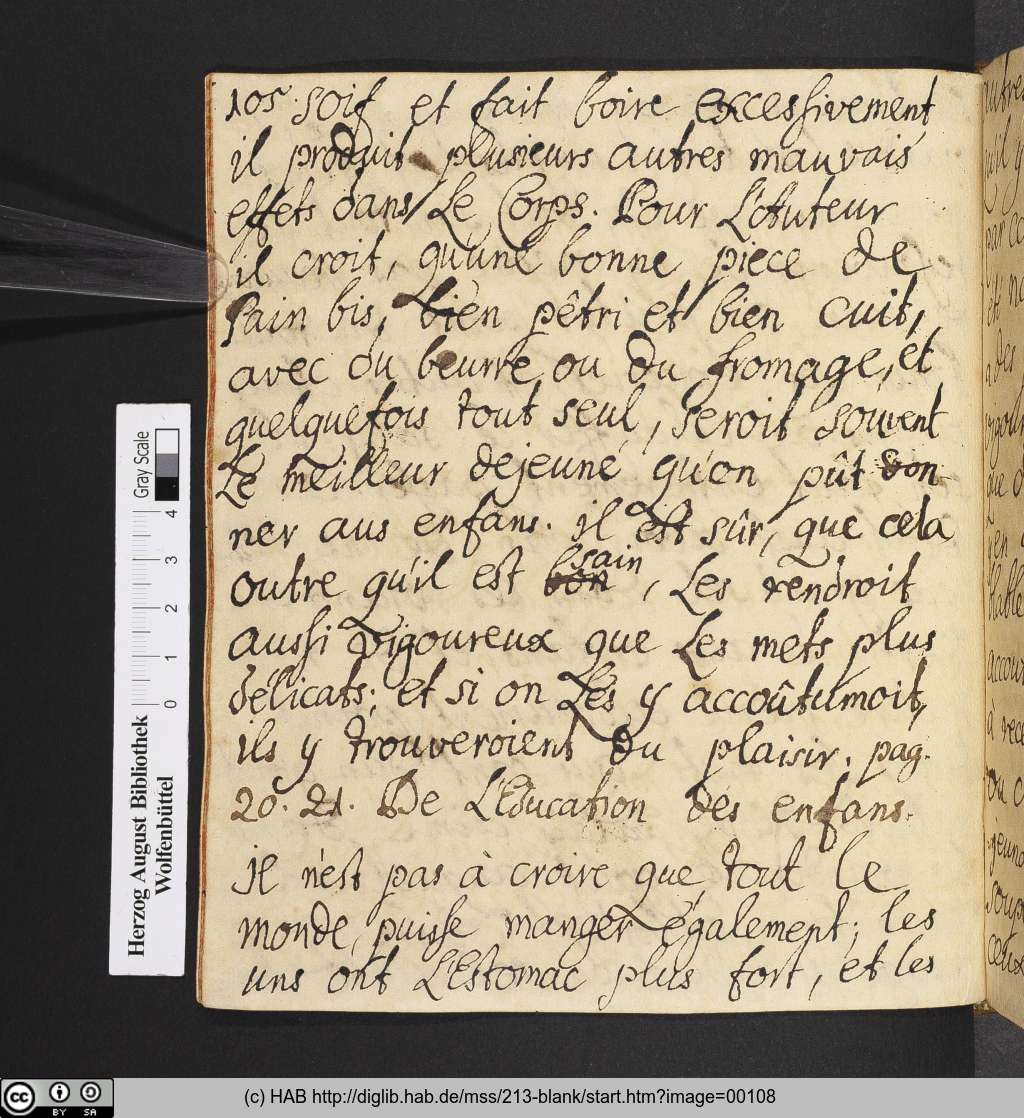 105. soif et fait boire excessivement
il produit plusieurs autres mauvais
effets dans Le Corps. Pour L'Auteur
il croit, qu'une bonne piece de
Pain bis, bien pêtri et bien cuit,
avec du beurre ou du fromage, et
quelquefois tout seul, seroit souvent
Le meilleur dejeuné qu'on pût don
ner aus enfans. il est sûr, que cela
outre qu'il est sain, Les rendroit
aussi vigoureux que Les mets plus
délicats; et si on Les y accoûtumoit,
ils y trouveroient du plaisir. pag.
20. 21. De L'Education des enfans.
il n'est pas à croire que tout le
monde puisse manger également; les
uns ont L'Estomac plus fort, et les
Herzog August Bibliothek
Wolfenbüttel
Gray Scale
0 1 2 3 4
cc BY SA
(c) HAB http://diglib.hab.de/mss/213-blank/start.htm?image=00108